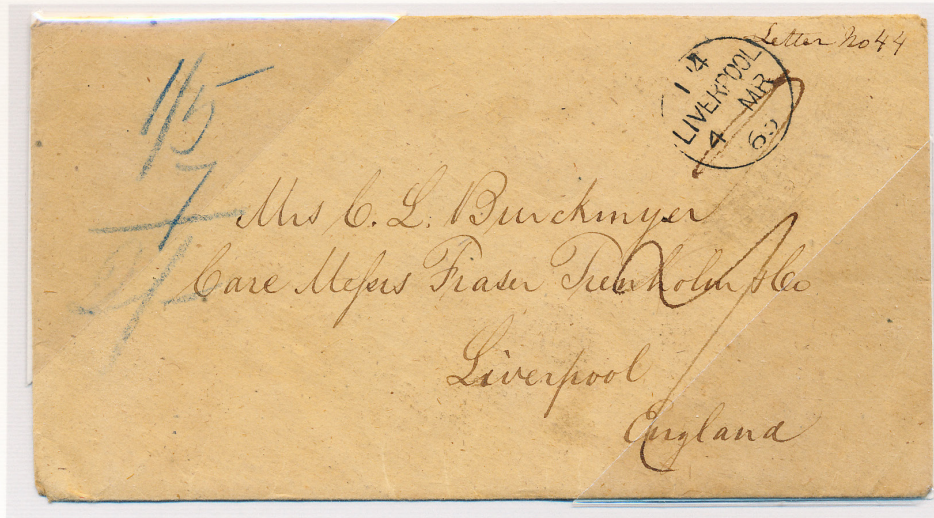 Letter No 44
14
LIVERPOOL
4 MR
65
1/5
7
2/
Mrs C. L. Burckmyer
Care Messrs Fraser Trenholm & Co
Liverpool
England